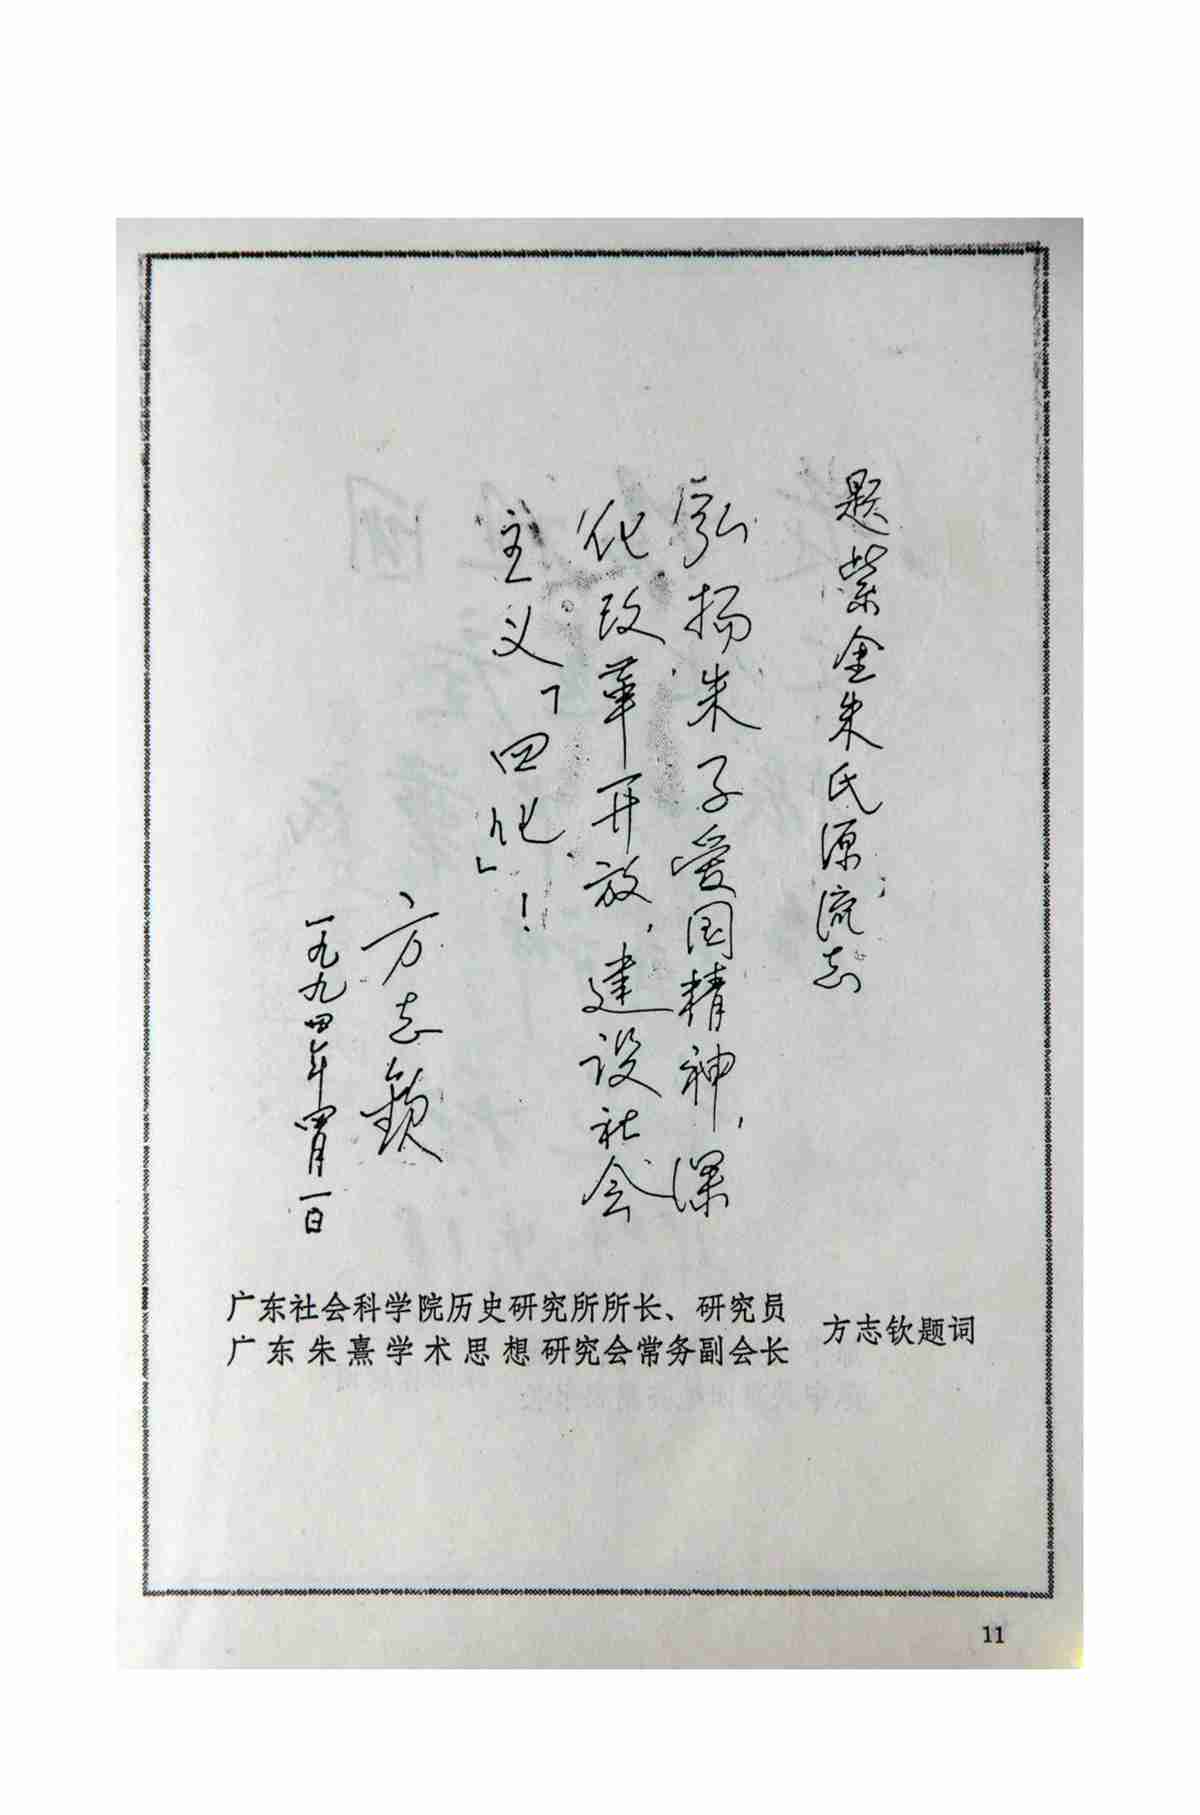 题紫金朱氏源流志
弘扬朱子爱国精神，深
化改革开放，建设社会
主义「四化」！
方志钦
一九九四年四月一日
广东社会科学院历史研究所所长、研究员
广东朱熹学术思想研究会常务副会长
方志钦题词
11